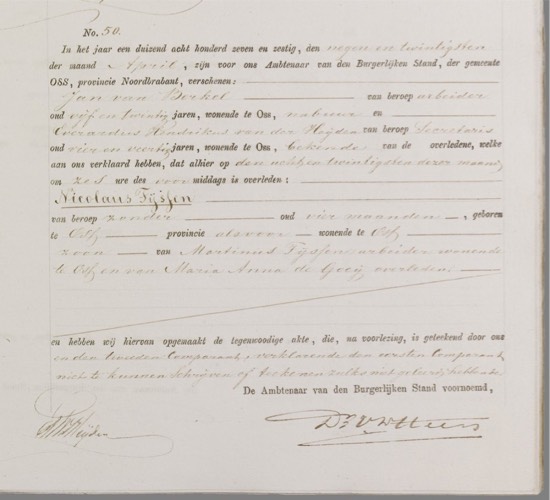 No. 50.
In het jaar een duizend acht honderd zeven en zestig, den negen en twintigsten
der maand April, zijn voor ons Ambtenaar van den Burgerlijken Stand, der gemeente
OSS, provincie Noordbrabant, verschenen:
Jan van Berkel van beroep arbeider
oud vijf en twintig jaren, wonende te Oss, nabuur en
Everardus Hendrikus van der Heijden van beroep Secretaris
oud vier en veertig jaren, wonende te Oss, bekende van de overledene, welke
aan ons verklaard hebben, dat alhier op den acht en twintigsten dezer maand,
om zes ure des voor middags is overleden:
Nicolaus Tijssen
van beroep zonder oud vier maanden, geboren
te Oss provincie alsvoor wonende te Oss
zoon van Martinus Tijssen arbeider wonende
te Oss en van Maria Anna de Gooij overleden.
en hebben wij hiervan opgemaakt de tegenwoordige akte, die, na voorlezing, is geteekend door ons
en den tweeden Comparant, verklarende den eersten Comparant
niet te kunnen schrijven of teekenen zulks niet geleerd hebbende.
De Ambtenaar van den Burgerlijken Stand voornoemd,